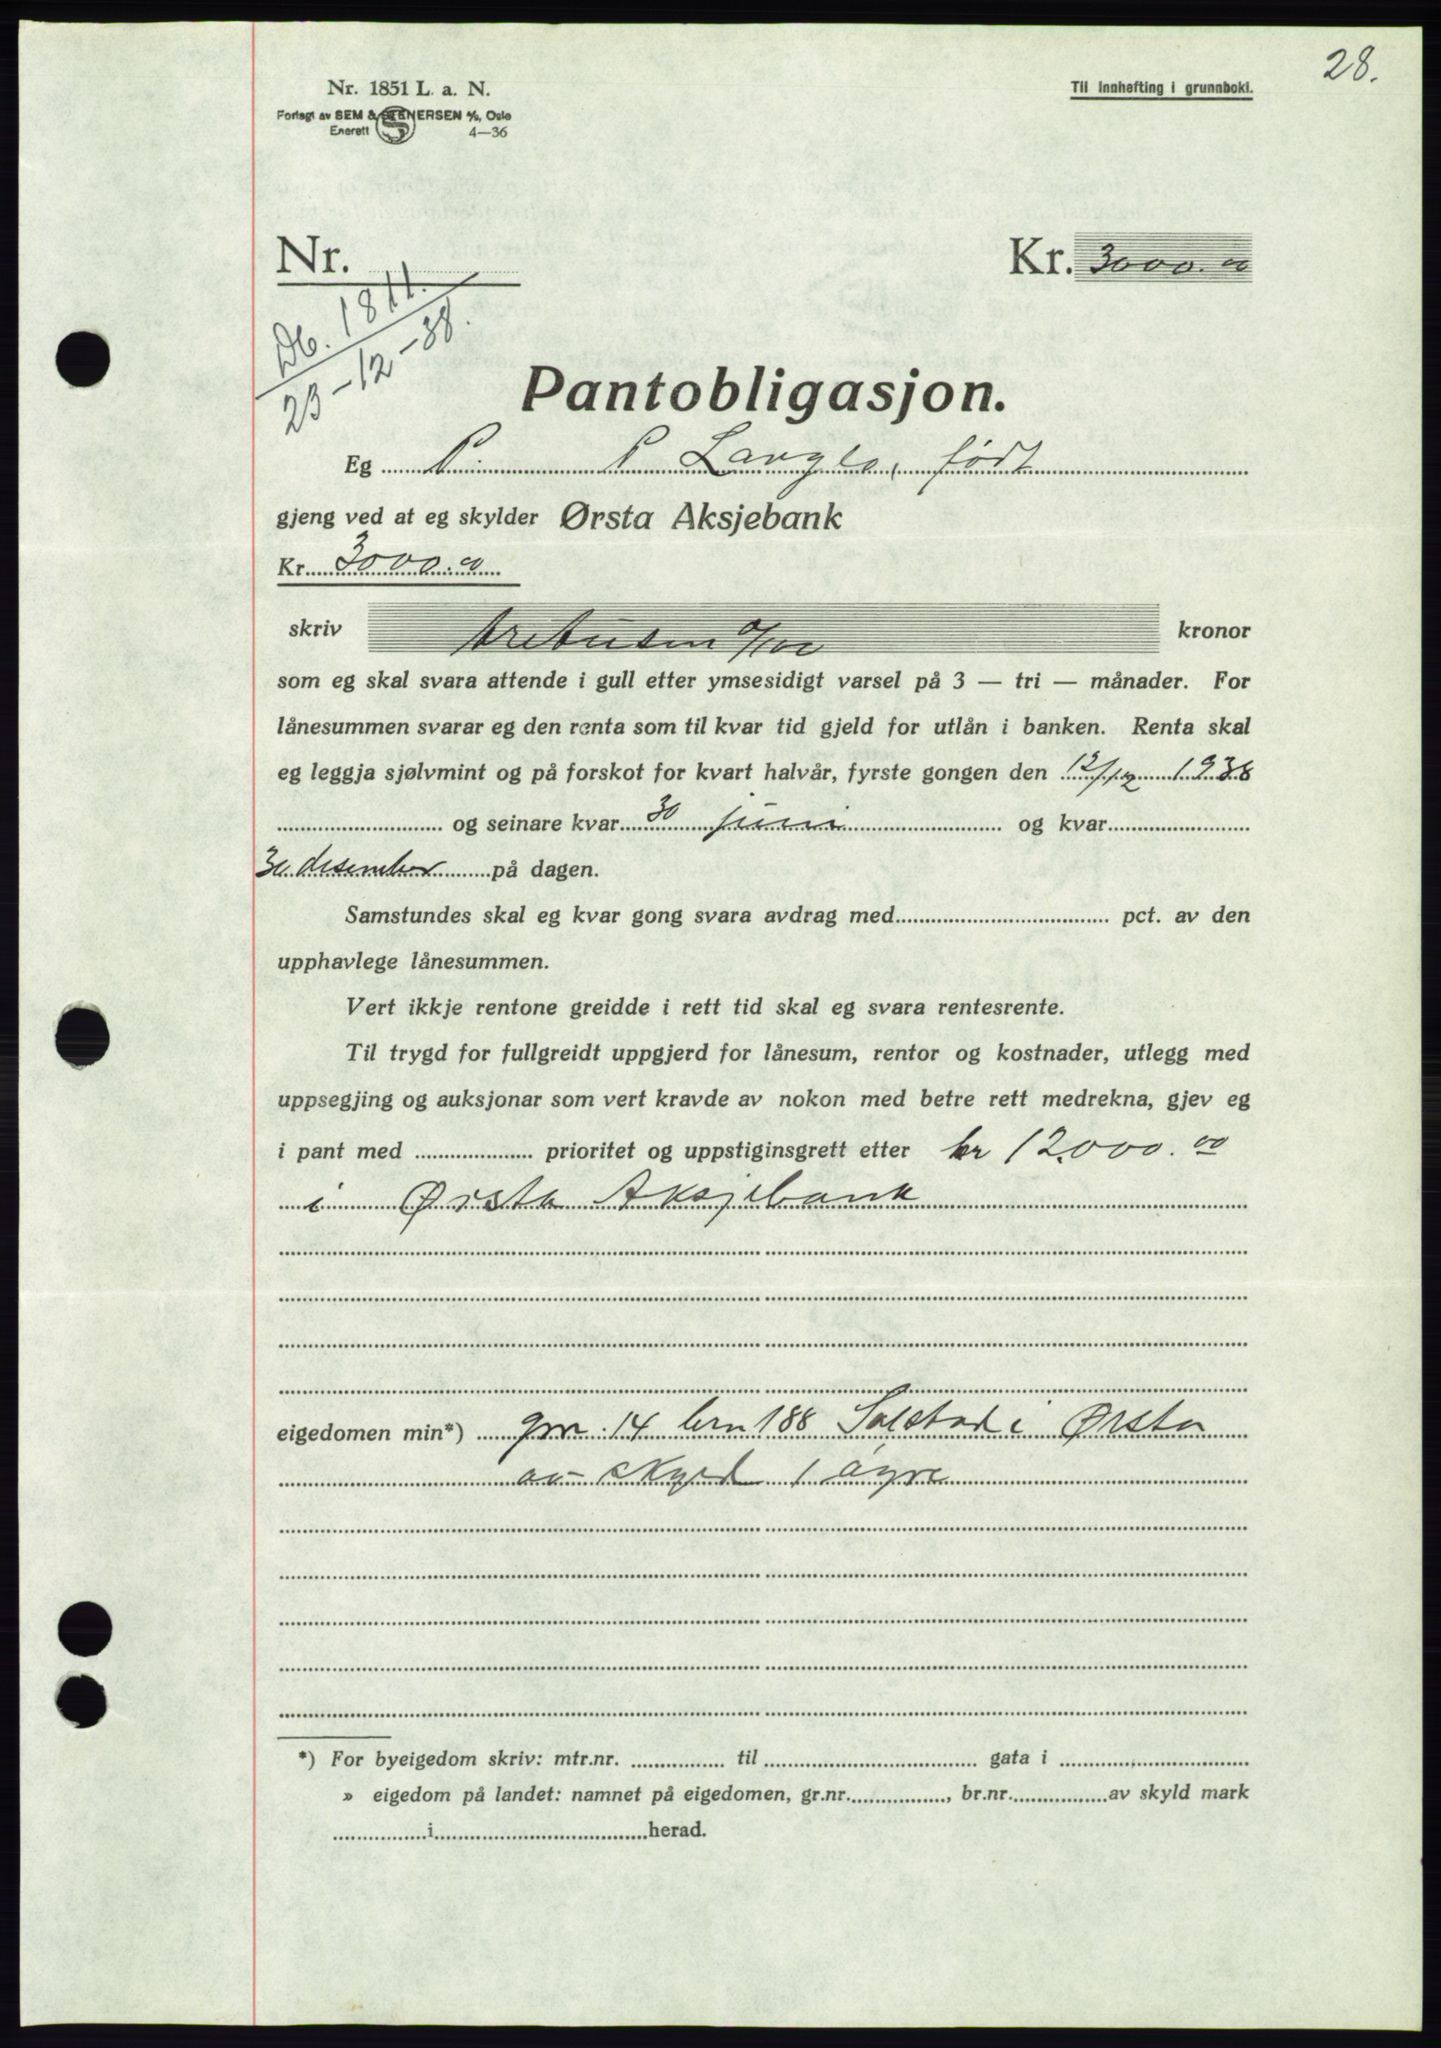 28.
Nr. 1851 L. a. N.
Til innhefting i grunnboki.
Forlagt av SEM & STENERSEN A/S, Oslo
Enerett 4—36
Nr.
Kr. 3000.00
Db. 1811.
23-12-38.
Pantobligasjon.
Eg P. P Langlo, født
gjeng ved at eg skylder Ørsta Aksjebank
Kr. 3000.00
skriv tretusen 0/100 kronor
som eg skal svara attende i gull etter ymsesidigt varsel på 3 — tri — månader. For
lånesummen svarar eg den renta som til kvar tid gjeld for utlån i banken. Renta skal
eg leggja sjølvmint og på forskot for kvart halvår, fyrste gongen den 12/12 1938
og seinare kvar 30 juni og kvar
30 desember på dagen.
Samstundes skal eg kvar gong svara avdrag med pct. av den
upphavlege lånesummen.
Vert ikkje rentone greidde i rett tid skal eg svara rentesrente.
Til trygd for fullgreidt uppgjerd for lånesum, rentor og kostnader, utlegg med
uppsegjing og auksjonar som vert kravde av nokon med betre rett medrekna, gjev eg
i pant med prioritet og uppstiginsgrett etter kr 12.000.00
i Ørsta Aksjebank
eigedomen min*) gnr. 14 brn 188 Solstad i Ørsta
av skyld 1 øyre
*) For byeigedom skriv: mtr.nr. til gata i
» eigedom på landet: namnet på eigedomen, gr.nr. , br.nr. av skyld mark
i herad.